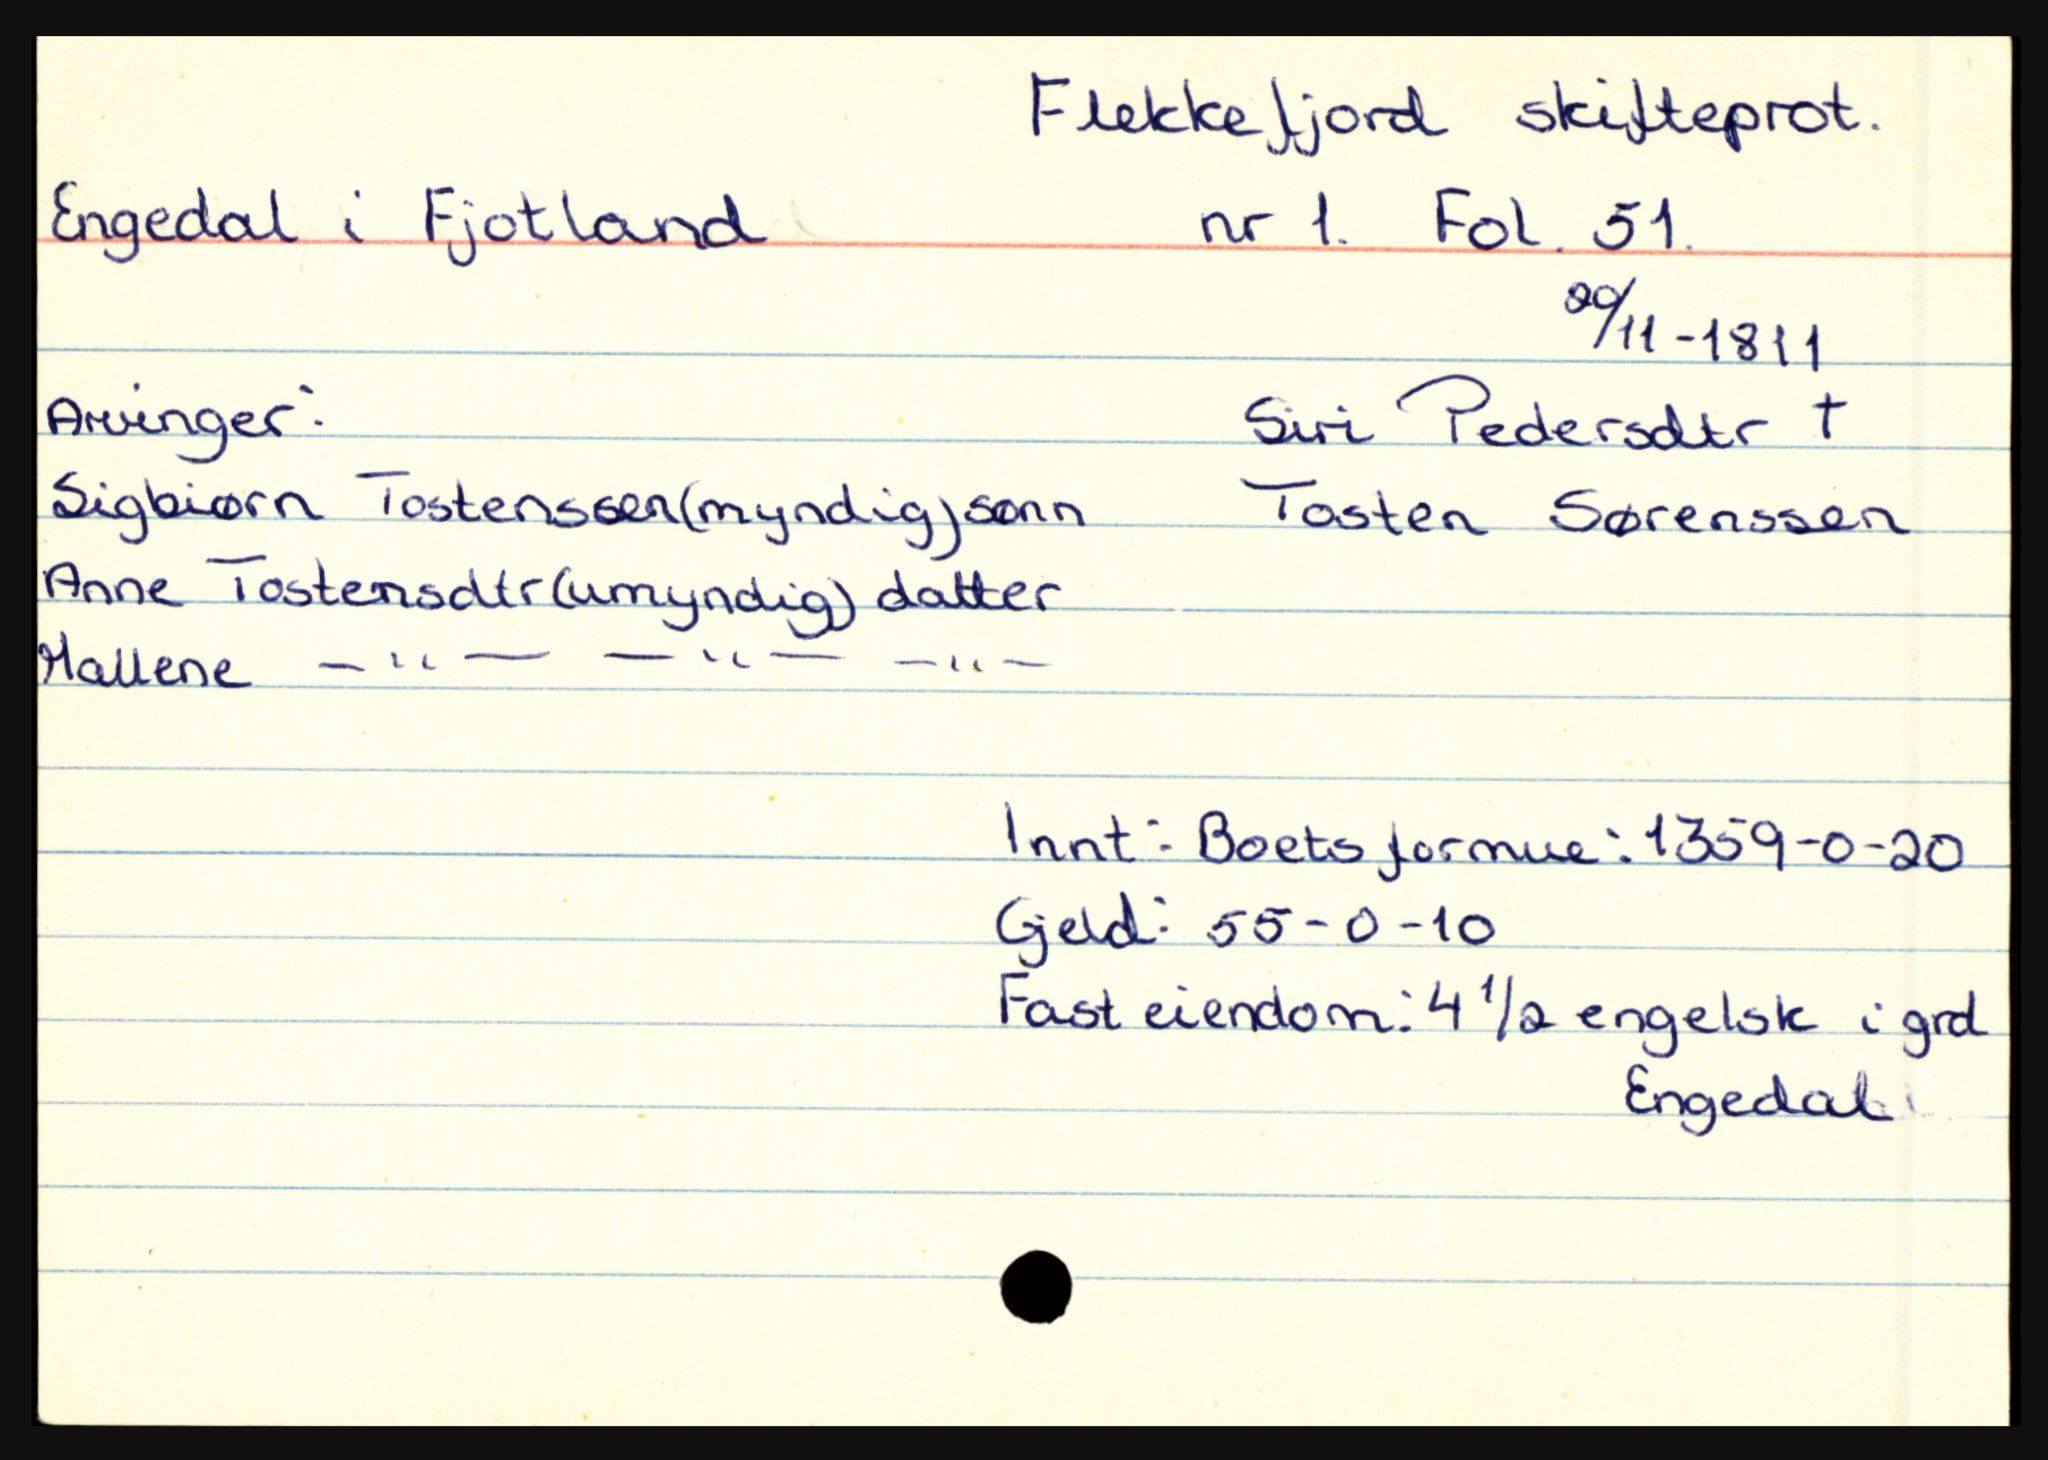 Flekkefjord skifteprot.
Engedal i Fjotland nr 1. Fol. 51.
20/11-1811
Arvinger: Siri Pedersdtr †
Sigbiørn Tostenssen (myndig) sønn Tosten Sørenssen
Anne Tostensdtr (umyndig) datter
Mallene —"— —"— —"—
Innt: Boets formue: 1359-0-20
Gjeld: 55-0-10
Fast eiendom: 4 1/2 engelsk i grd
Engedal